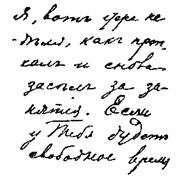 Я, вотъ утра не
былъ, какъ прі‑
халъ и снова
засѣлъ за за‑
нятія. Если
у Тебя будетъ
свободное время